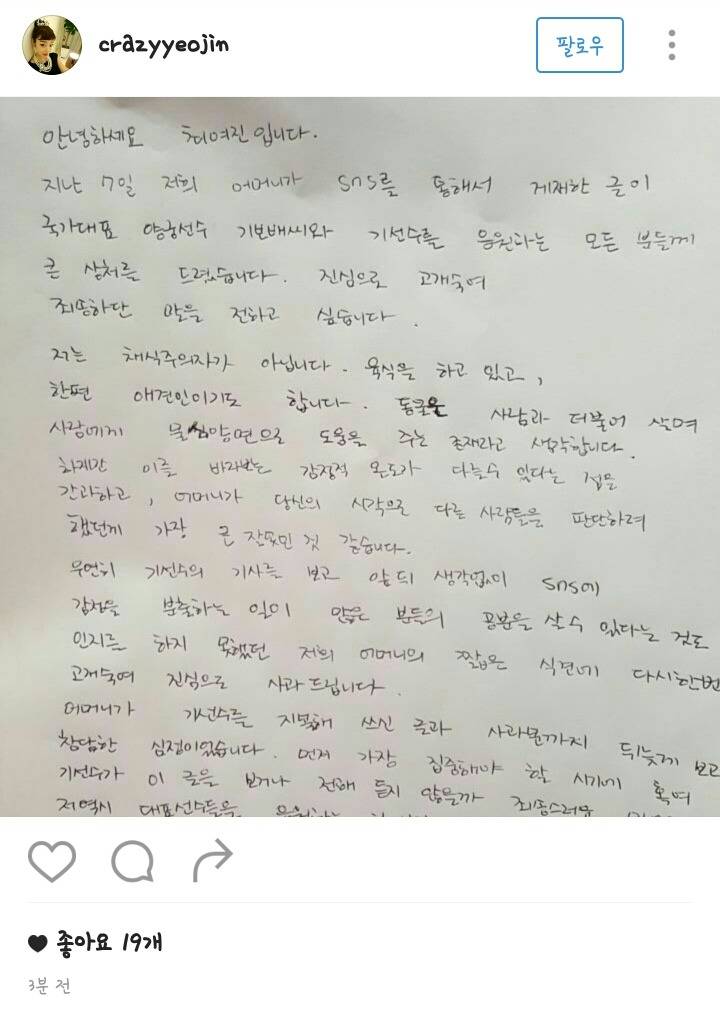 crazyyeojin
팔로우
안녕하세요 최여진입니다.
지난 7일 저희 어머니가 SNS를 통해서 게재한 글이
국가대표 양궁선수 기보배씨와 기선수를 응원하는 모든 분들께
큰 상처를 드렸습니다. 진심으로 고개숙여
죄송하단 말을 전하고 싶습니다.
저는 채식주의자가 아닙니다. 육식을 하고 있고,
한편 애견인이기도 합니다. 동물은 사람과 더불어 살며
사람에게 물심양면으로 도움을 주는 존재라고 생각합니다.
하지만 이를 바라보는 감정적 온도가 다를수 있다는 점을
간과하고, 어머니가 당신의 시각으로 다른 사람들을 판단하려
했던게 가장 큰 잘못인 것 같습니다.
우연히 기선수의 기사를 보고 앞뒤 생각없이 SNS에
감정을 분출하는 일이 많은 분들의 공분을 살수 있다는 것도
인지를 하지 못했던 저희 어머니의 짧은 식견에 다시한번
고개숙여 진심으로 사과 드립니다.
어머니가 기선수를 지목해 쓰신 글과 사과문까지 뒤늦게 보고
참담한 심정이었습니다. 먼저 가장 집중해야 할 시기에 혹여
기선수가 이 글을 보거나 전해 듣지 않을까 죄송스러운
저역시 대표선수들을 응원하는
좋아요 19개
3분 전